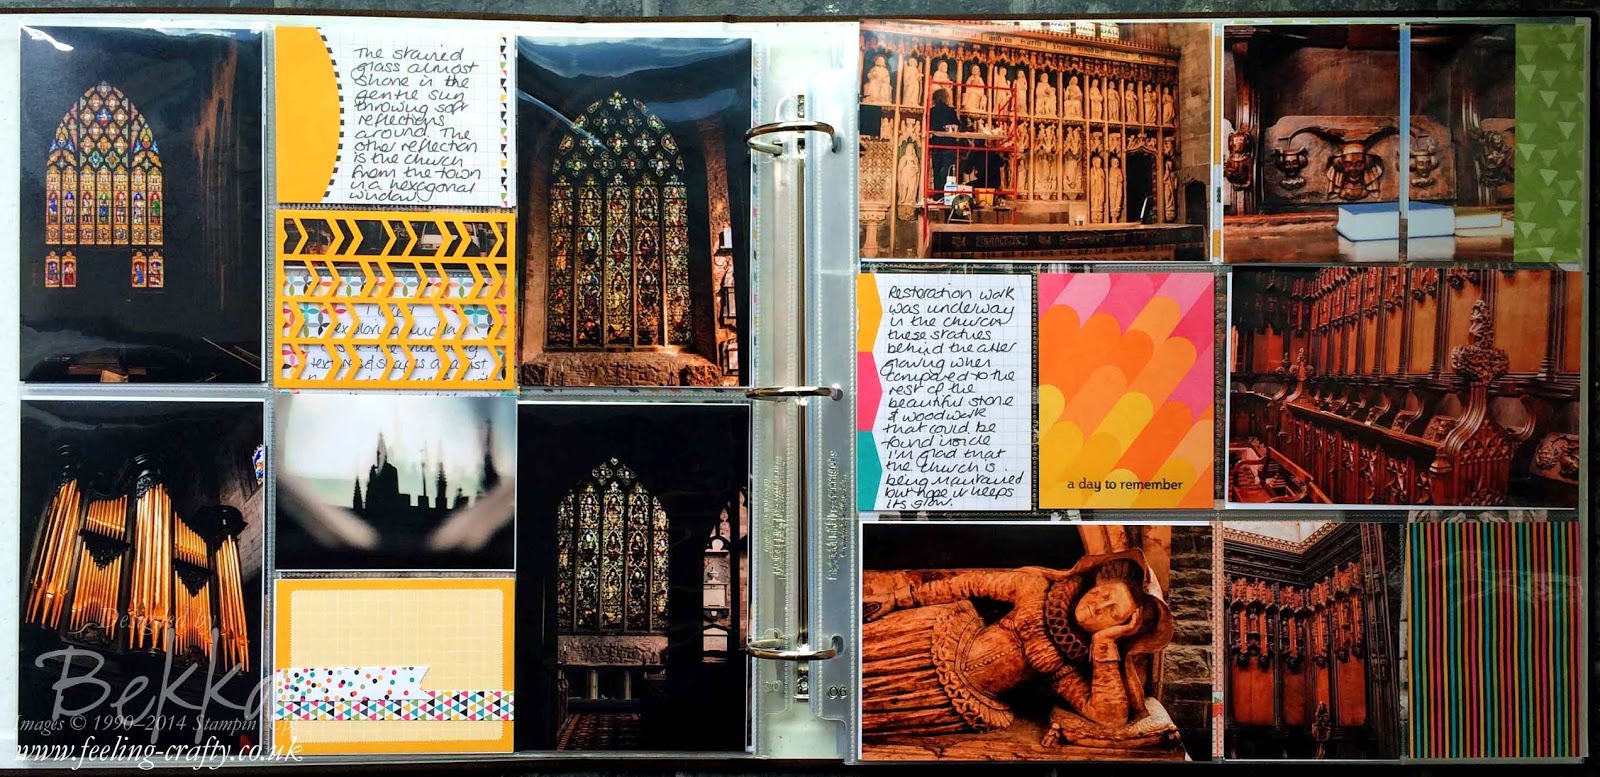 The stained
glass almost
Shone in the
gentle sun
throwing soft
reflections
around. The
other reflection
is the church
from the town
in a hexagonal
window.
explore
Restoration work
was underway
in the church
these statues
behind the alter
glowing when
compared to the
rest of the
beautiful stone
& woodwork
that could be
found inside
I'm glad that
the church is
being maintained
but hope it keeps
its glow.
a day to remember
SANCTUS
Designed by
Bekka
Images © 1990-2014 Stampin' Up
www.feeling-crafty.co.uk